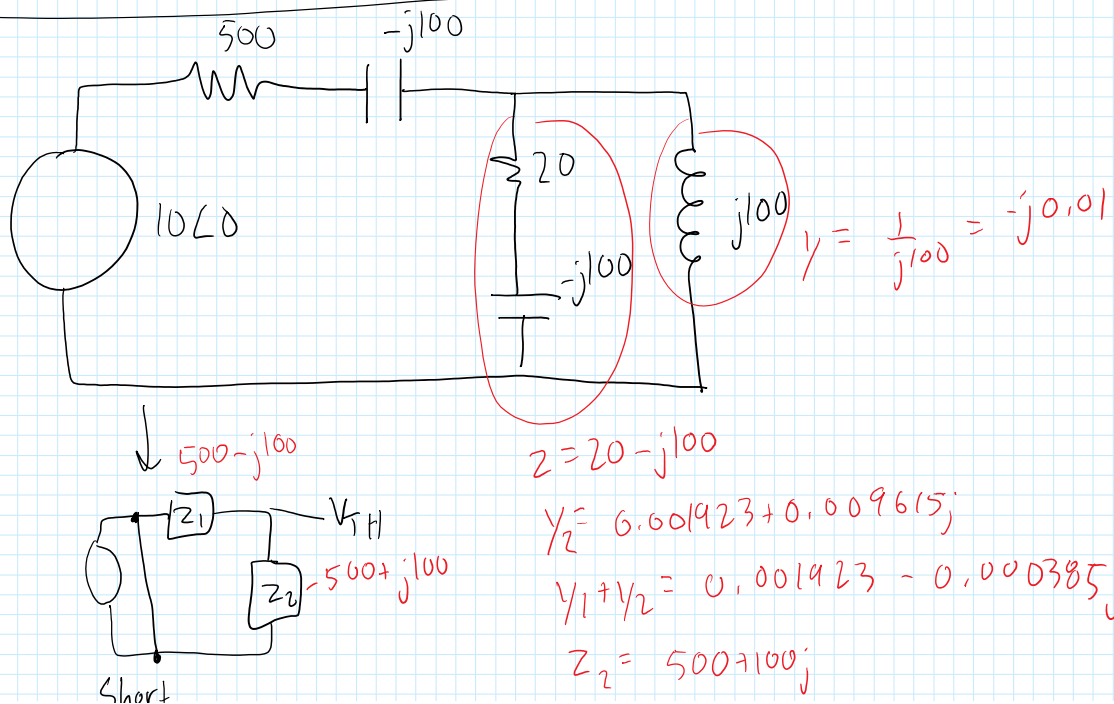 500
-j100
10∠0
20
-j100
j100
y = 1/j100 = -j0.01
500-j100
Z1
VTH
Z2
500+j100
Short
Z=20-j100
Y2= 0.001923+0.009615j
Y1+Y2= 0.001923-0.000385j
Z2= 500+100j